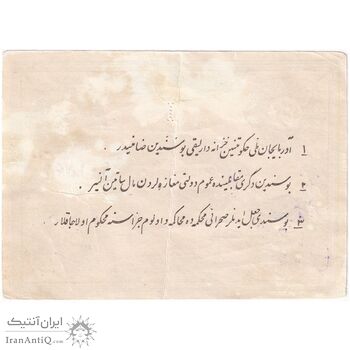 ۱ آذربایجان ملی حکومتینین خزانه داریلیقی بو سندین ضامنیدر.
۲ بو سندین دگری مقابلینده عموم دولتی مغازه لردن مال ساتین آلنیر.
۳ بو سندی جعل ایدنلر صحرائی محکمه ده محاکمه و اولوم جزاسنه محکوم اولاجاقلار
ایران آنتیک
IranAntiQ.com